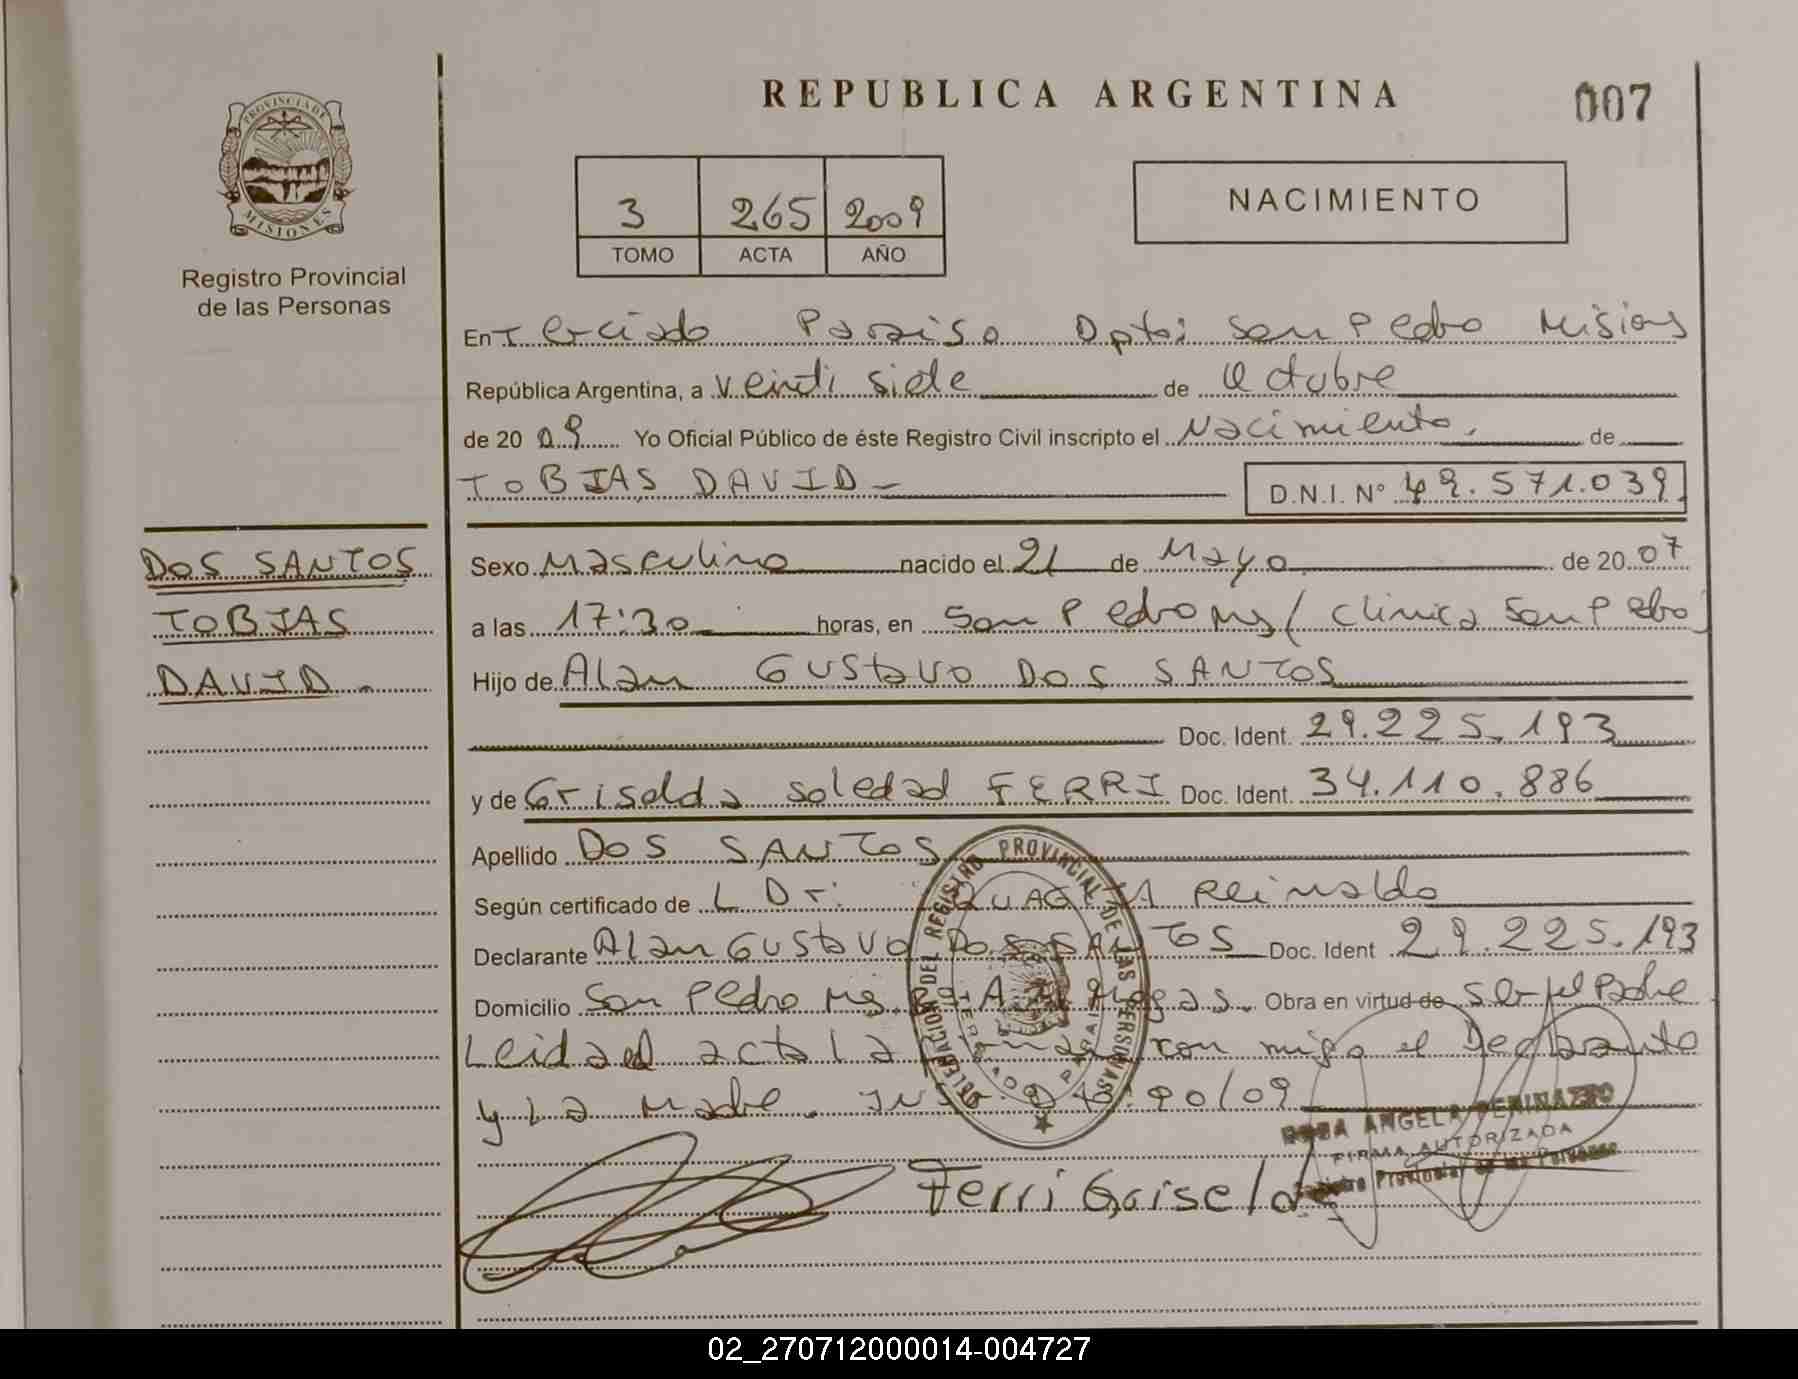 REPUBLICA ARGENTINA
007
PROVINCIA DE
MISIONES
Registro Provincial
de las Personas
3 265 2009
TOMO ACTA AÑO
NACIMIENTO
En Terciado Paraiso Dpto: San Pedro Misiones
República Argentina, a veinti siete de Octubre
de 2009 Yo Oficial Público de éste Registro Civil inscripto el Nacimiento. de
TOBIAS DAVID- D.N.I. Nº 49.571.039
DOS SANTOS
TOBIAS
DAVID.-
Sexo Masculino nacido el 21 de Mayo de 2007
a las 17:30 horas, en San Pedro Ms/ Clinica San Pedro
Hijo de Alan GUSTAVO DOS SANTOS
Doc. Ident. 29.225.193
y de Griselda Soledad FERRI Doc. Ident. 34.110.886
Apellido DOS SANTOS
Según certificado de L Dr: Reinaldo
Declarante Alan GUSTAVO DOS SANTOS Doc. Ident 29.225.193
Domicilio San Pedro Ms. Obra en virtud de ser el Padre
Leida el acta la con migo el Declarante
y la Madre. 90/09
DELEGACION DEL REGISTRO PROVINCIAL DE LAS PERSONAS
TERCIADO PARAISO
ROSA ANGELA
FIRMA AUTORIZADA
Registro Provincial de las Personas
Ferri Griselda
02_270712000014-004727